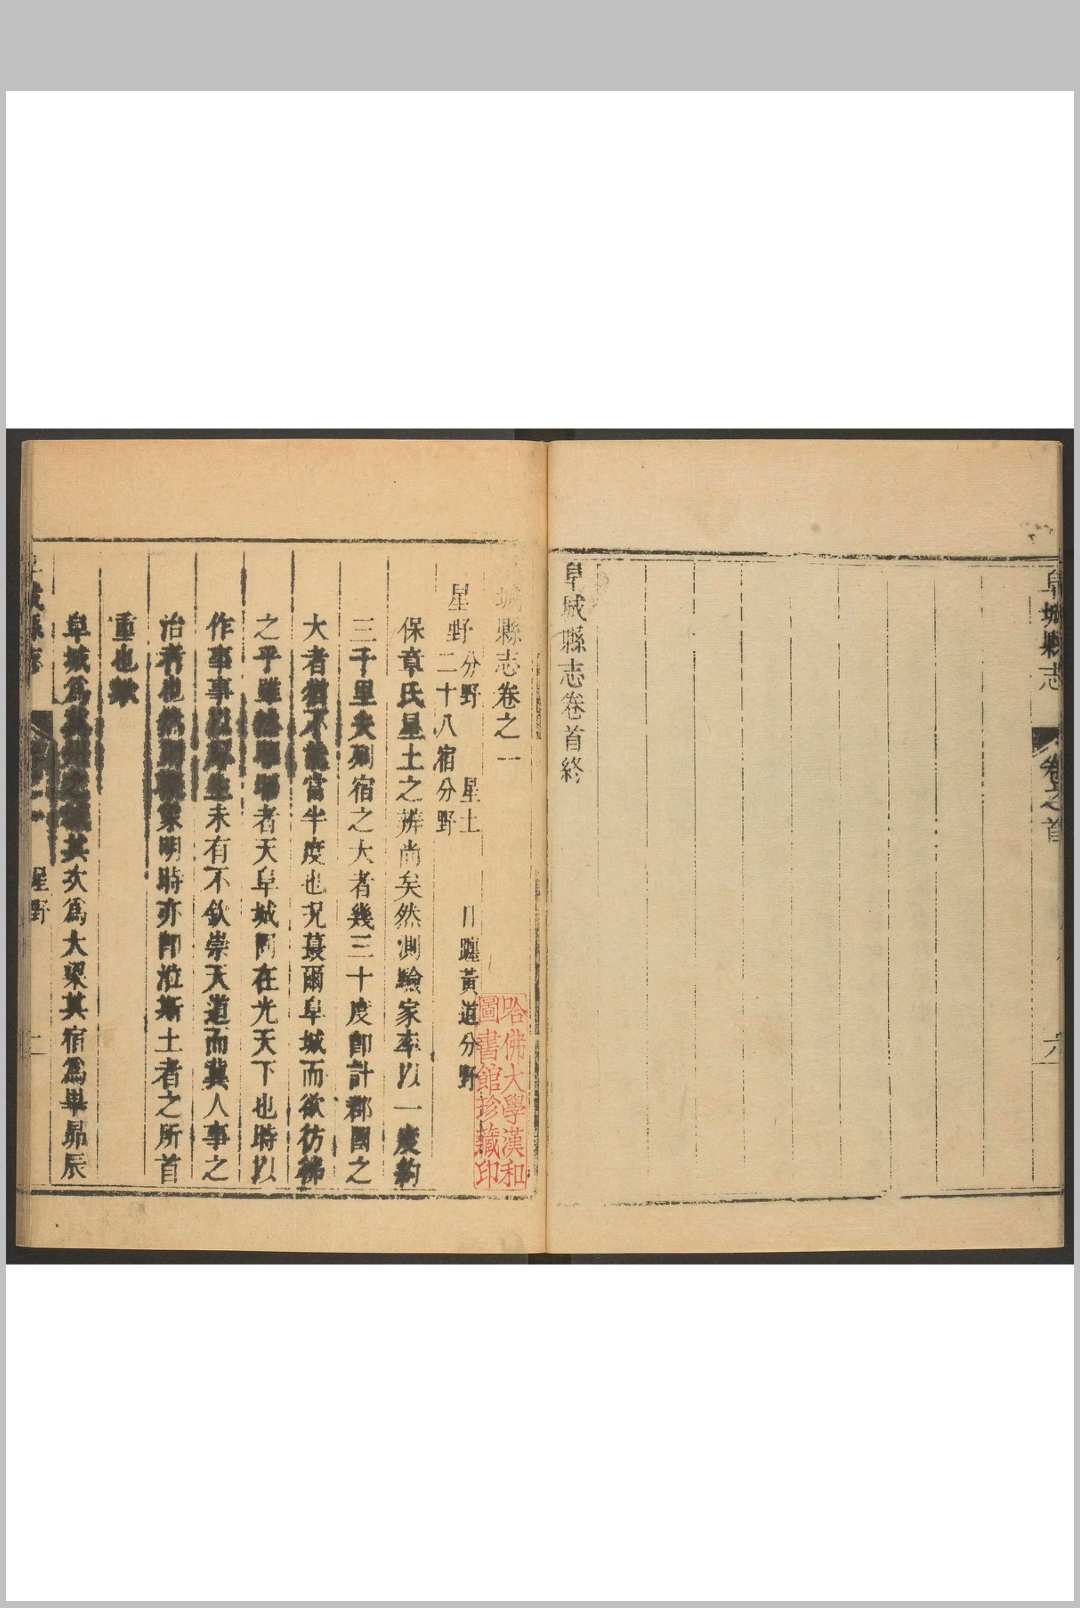 阜城縣志
卷之首
六
阜城縣志卷首終
城縣志卷之一
星野 分野 星土 日躔黃道分野
二十八宿分野
保章氏星土之辨尚矣然測驗家率以一度約
三千里夫列宿之大者幾三十度卽計郡國之
大者猶不能當半度也況蕞爾阜城而欲彷彿
之乎雖 者天阜城同在光天下也時以
作事事以厚生未有不欽崇天道而冀人事之
治者也然則 象明時亦卽涖斯土者之所首
重也歟
阜城爲冀州之域其次爲大梁其宿爲畢昴辰
城縣志
星野
哈佛大學漢和
圖書館珍藏印